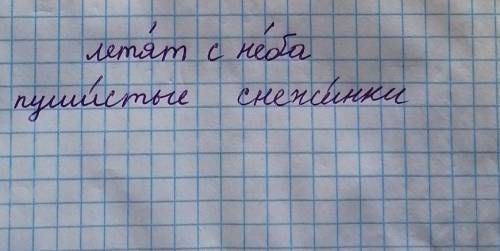 летя́т с не́ба
пуши́стые снежи́нки